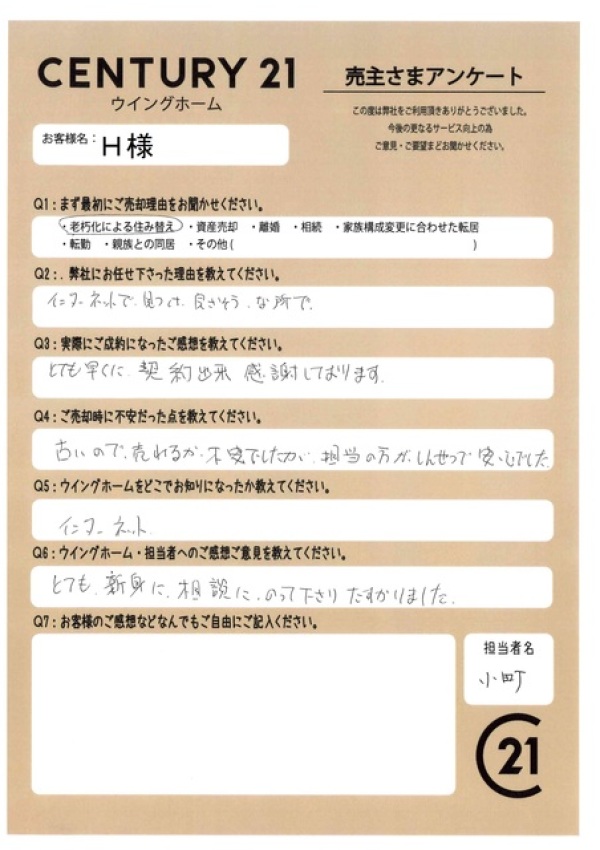 CENTURY 21
ウイングホーム
売主さまアンケート
この度は弊社をご利用頂きありがとうございました。
今後の更なるサービス向上の為
ご意見・ご要望までお聞かせください。
お客様名：H様
Q1：まず最初にご売却理由をお聞かせください。
・老朽化による住み替え ・資産売却 ・離婚 ・相続 ・家族構成変更に合わせた転居
・転勤 ・親族との同居 ・その他 ( )
Q2：. 弊社にお任せ下さった理由を教えてください。
インターネットで、見つけ、良さそうな所で、
Q3：実際にご成約になったご感想を教えてください。
とても早くに、契約出来 感謝しております。
Q4：ご売却時に不安だった点を教えてください。
古いので、売れるか、不安でしたが、担当の方が、しんせつで安心でした
Q5：ウイングホームをどこでお知りになったか教えてください。
インターネット
Q6：ウイングホーム・担当者へのご感想ご意見を教えてください。
とても、新身に、相談に、のって下さりたすかりました。
Q7：お客様のご感想などなんでもご自由にご記入ください。
担当者名
小町
C21